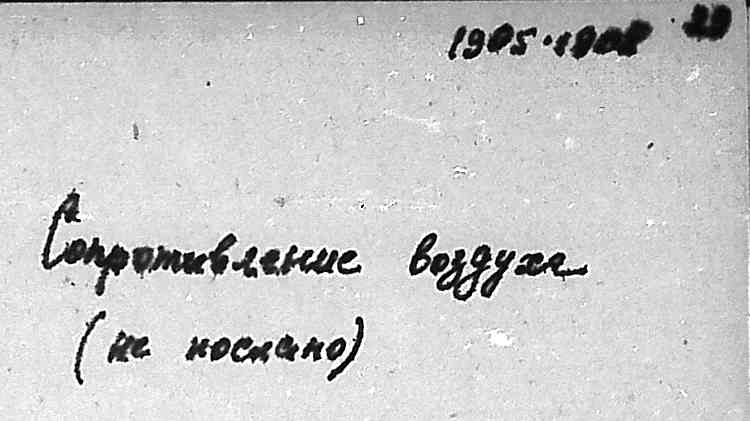 1905-1908 29
Сопротивление воздуха
(не послано)